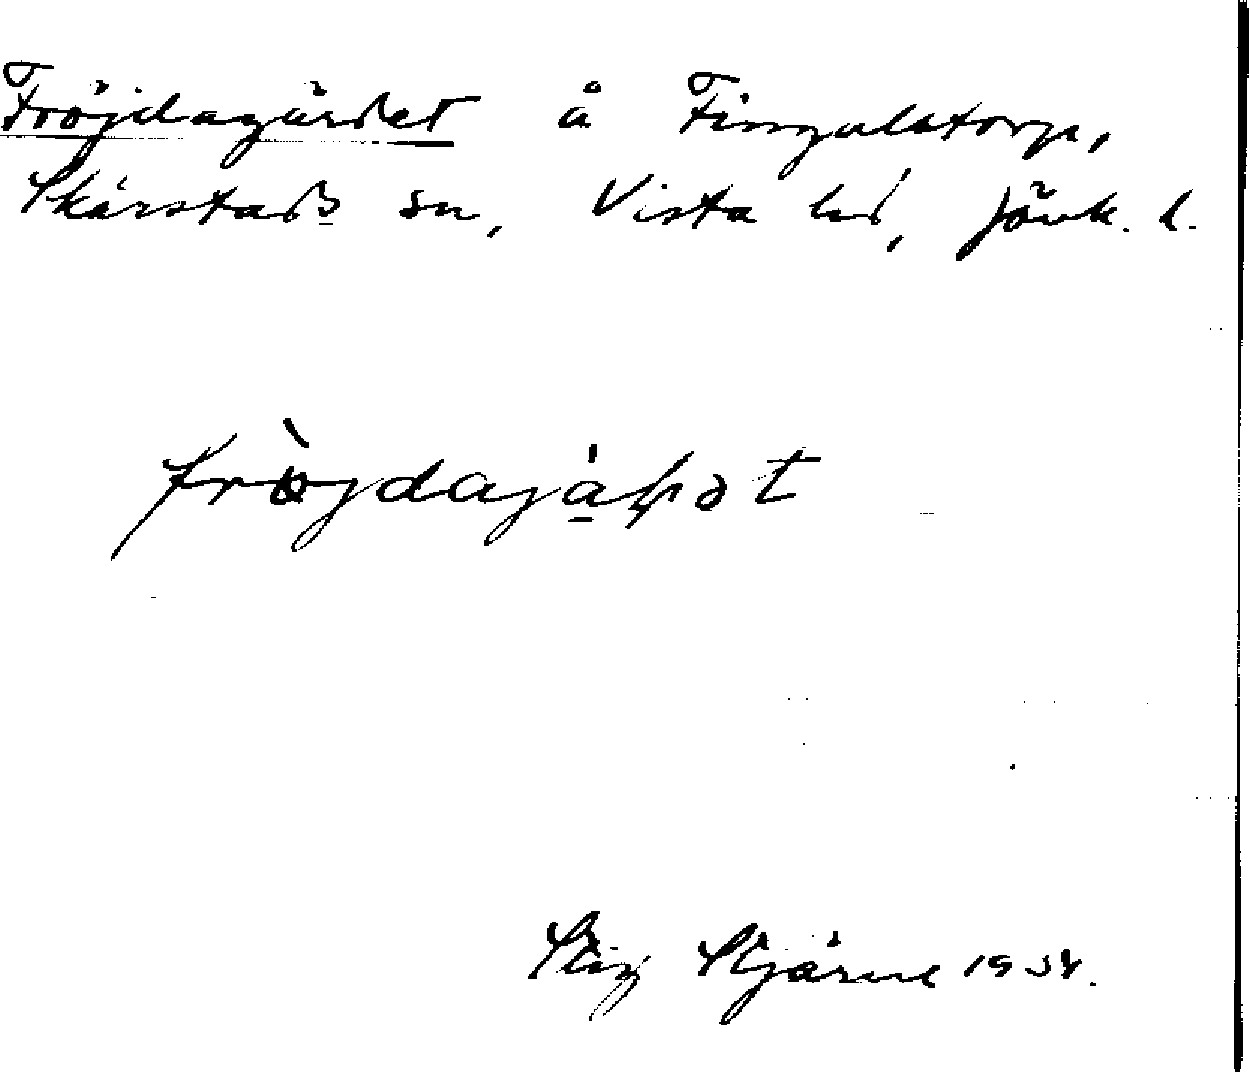 Fröjdagärdet å Fingalstorp,
Skärstads sn, Vista hd, Jönk. l.
Stig Stjärne 1934.